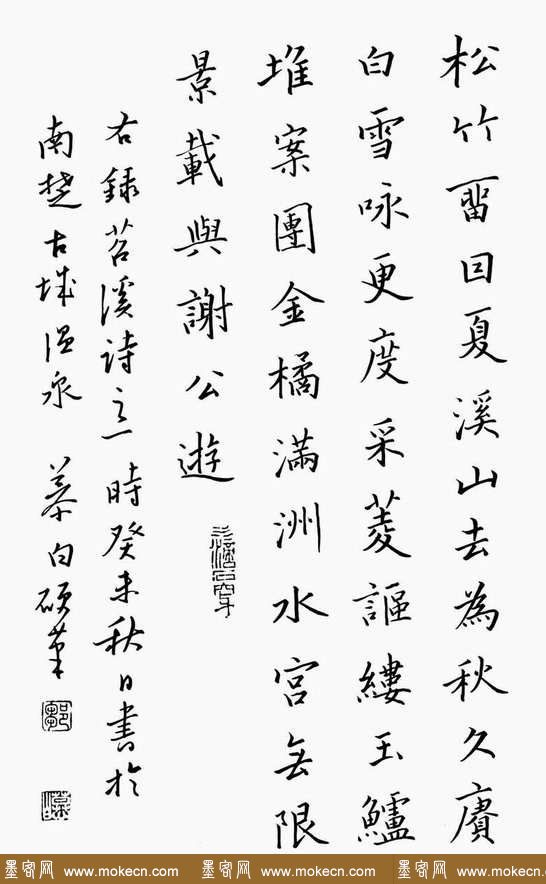 松竹畱囙夏溪山去為秋久賡
白雪咏更度采菱謳縷玉鱸
堆案團金橘滿洲水宮無限
景載與謝公遊
右録苕溪詩之一時癸未秋日書於
南楚古城温泉 慕白硕筆
墨客网 www.mokecn.com 墨客网 www.mokecn.com 墨客网 www.mokecn.com